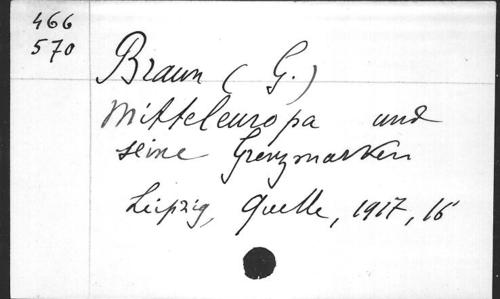 466
570
Braun (G.)
Mitteleuropa und
seine Grenzmarken
Leipzig, Quelle, 1917, 16